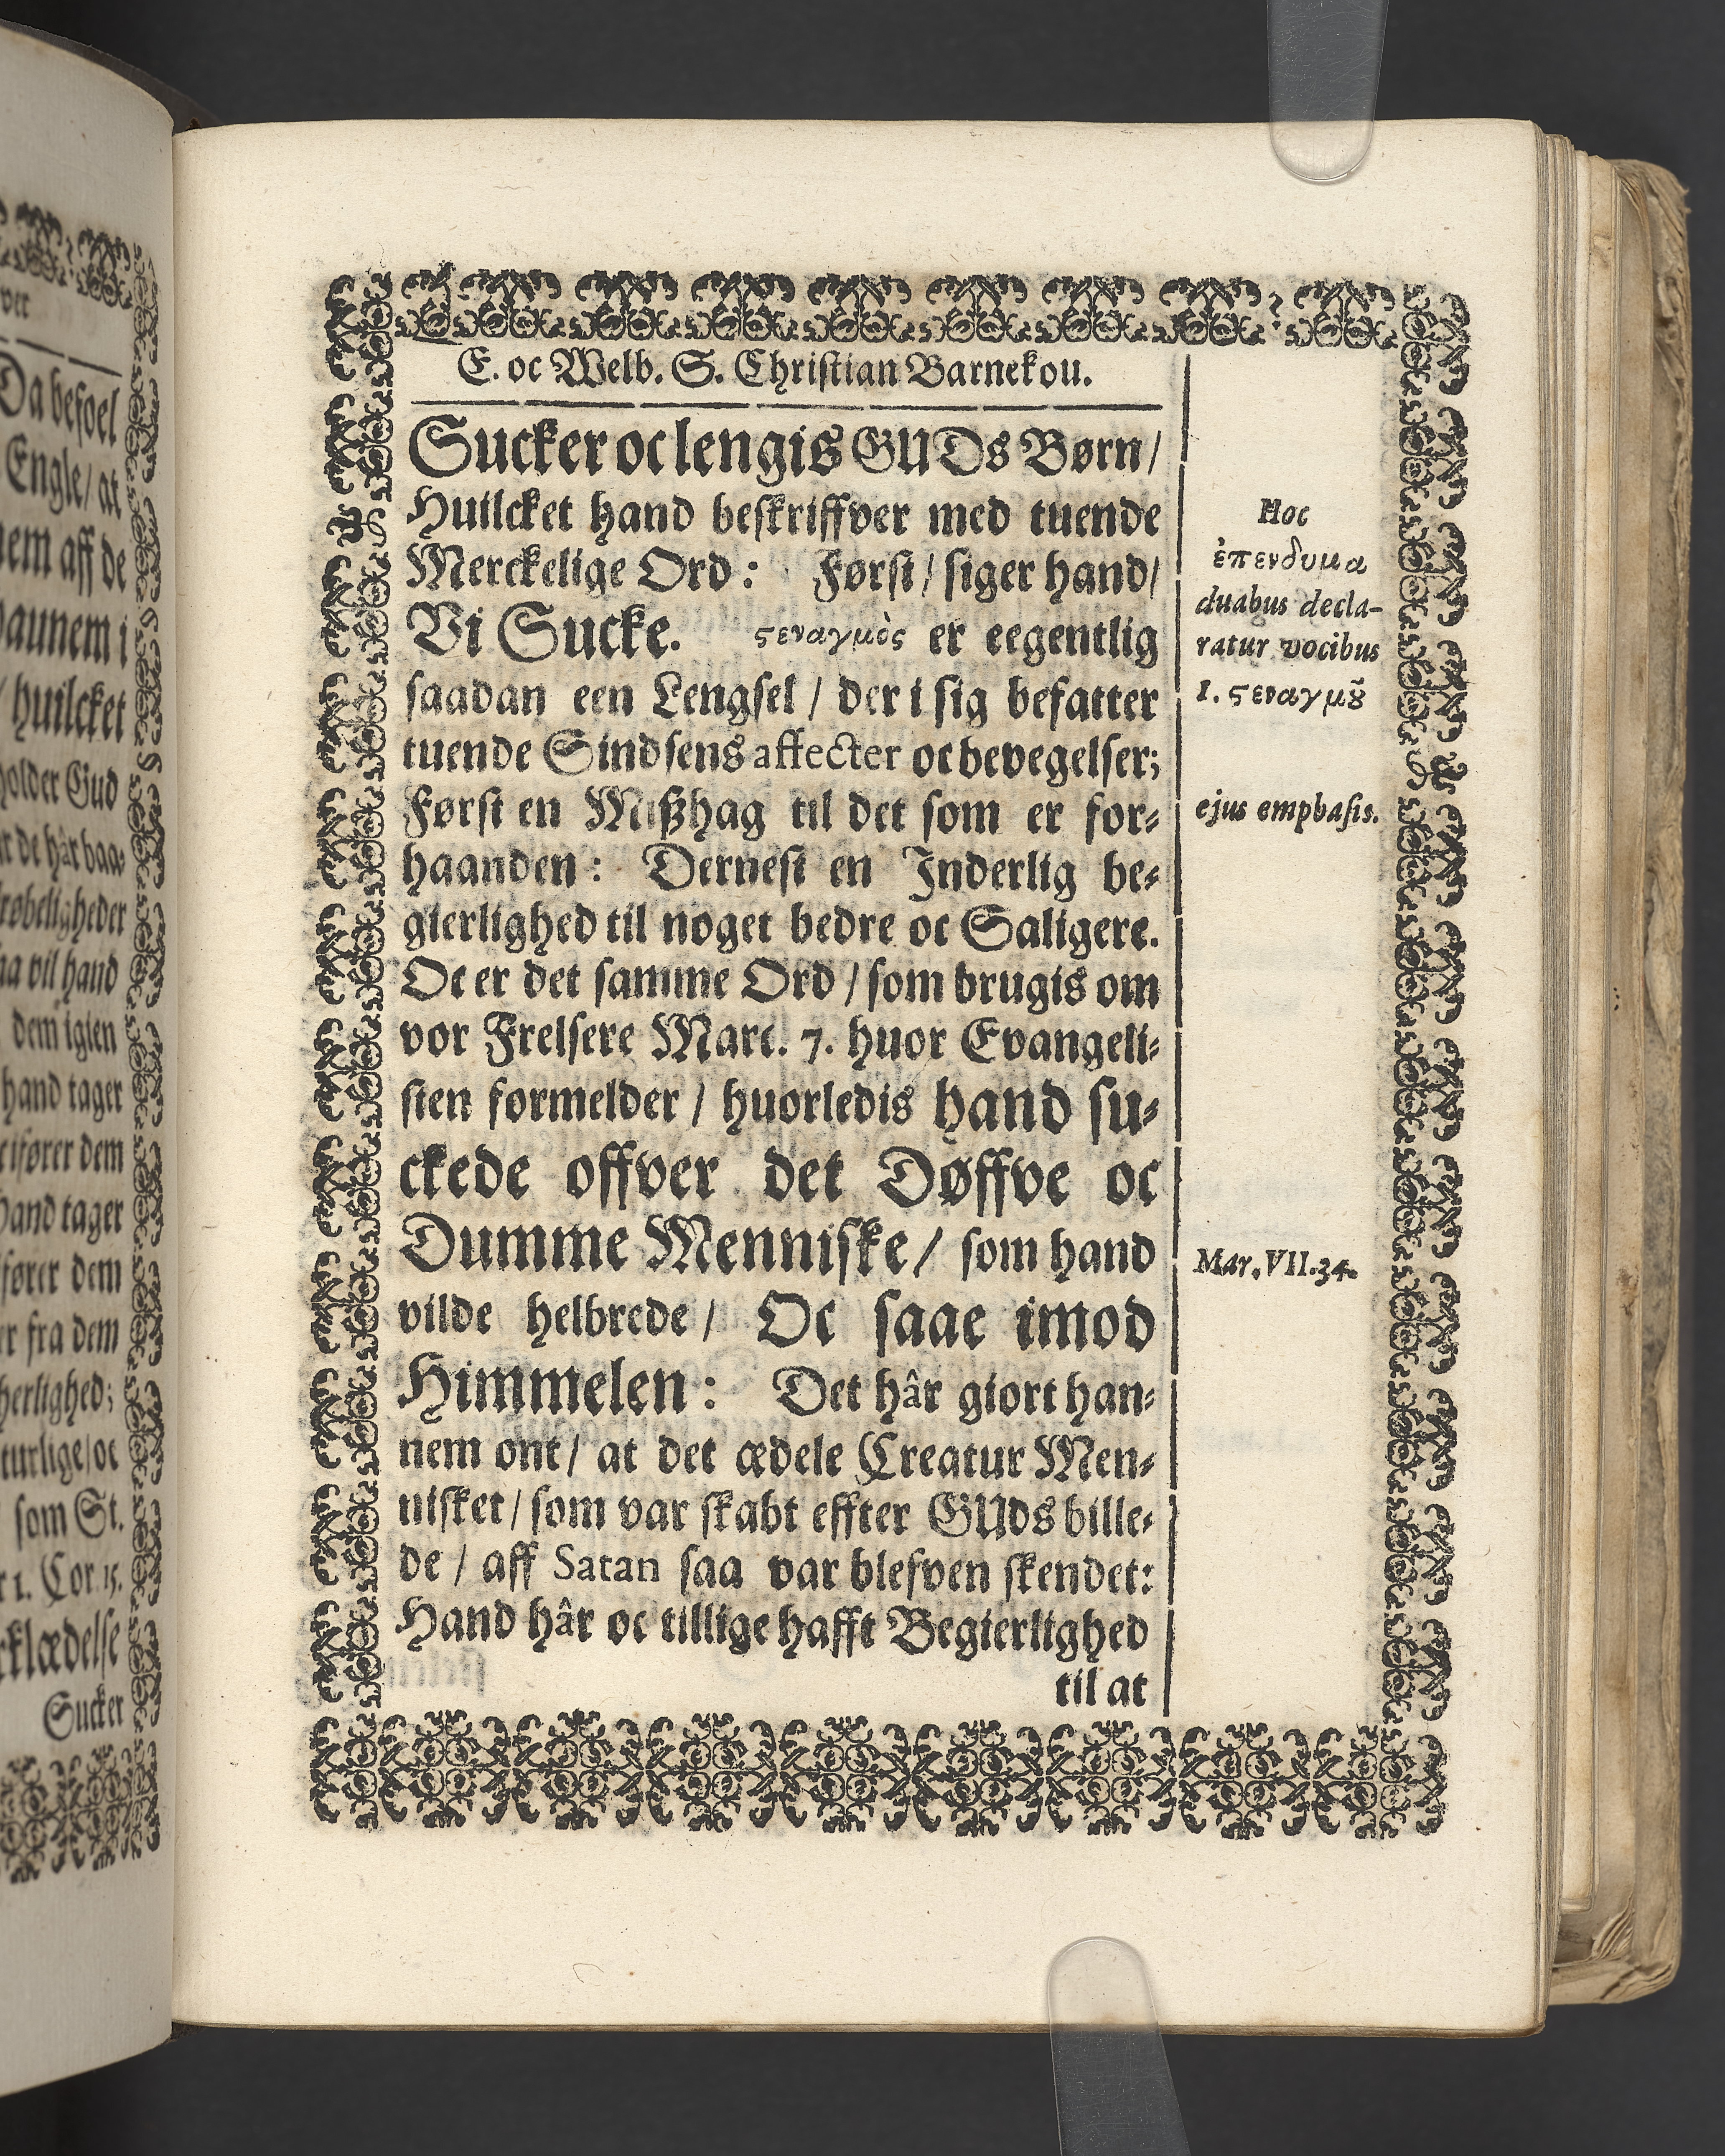 ver
Da befoel
Engle/ at
nem aff de
huilcket
holder Gud
vil hand
dem igien
hand tager
fører dem
hand tager
fører dem
fra dem
herlighed;
som St.
1. Cor. 15.
Sucker
E. oc Welb. S. Christian Barnekou.
Sucker oc lengis GUDs Børn/
Huilcket hand beskriffver med tuende
Merckelige Ord: Først/ siger hand/
Vi Sucke. ϛεναγμὸς er eegentlig
saadan een Lengsel / der i sig befatter
tuende Sindsens affecter oc bevegelser;
Først en Mißhag til det som er for-
haanden: Dernest en Inderlig be-
gierlighed til noget bedre oc Saligere.
Oc er det samme Ord / som brugis om
vor Frelsere Marc. 7. huor Evangeli-
sten formelder / huorledis hand su-
ckede offver det Døffve oc
Dumme Menniske/ som hand
vilde helbrede/ Oc saae imod
Himmelen: Det hâr giort han-
nem ont/ at det ædele Creatur Men-
nisket/ som var skabt effter GUds bille-
de / aff Satan saa var blefven skendet:
Hand hâr oc tillige hafft Begierlighed
til at
Hoc
ἐπενδυμα
duabus decla-
ratur vocibus
1. ϛεναγμȣ͂
ejus emphasis.
Mar. VII. 34.